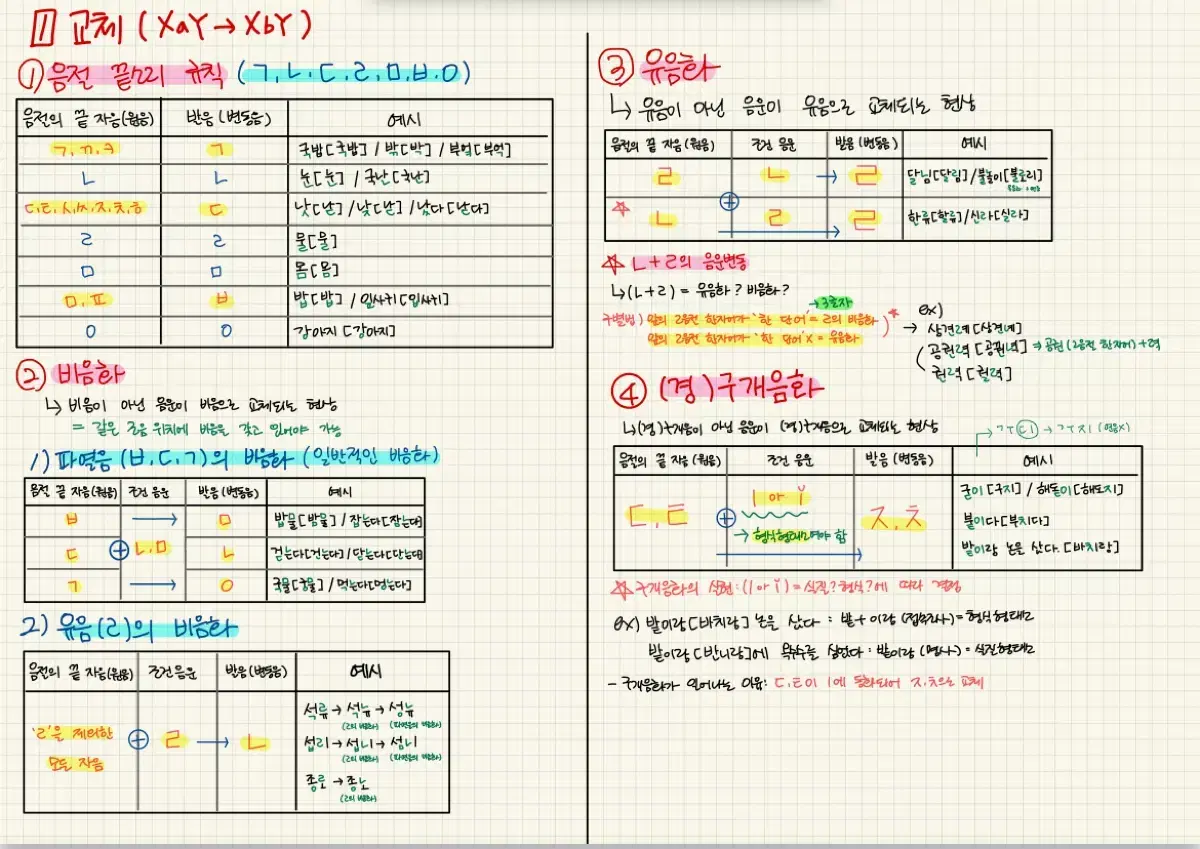 1 교체 (XaY → XbY)
① 음절 끝소리 규칙 (ㄱ, ㄴ, ㄷ, ㄹ, ㅁ, ㅂ, ㅇ)
음절의 끝 자음(원음) 반응 (변동음) 예시
ㄱ, ㄲ, ㅋ ㄱ 국밥[국밥] / 밖[박] / 부엌[부억]
ㄴ ㄴ 눈[눈] / 국난[국난]
ㄷ, ㅌ, ㅅ, ㅆ, ㅈ, ㅊ, ㅎ ㄷ 낫[낟] / 낮[낟] / 났다[낟다]
ㄹ ㄹ 물[물]
ㅁ ㅁ 몸[몸]
ㅁ, ㅍ ㅂ 밥[밥] / 잎사귀[입사귀]
ㅇ ㅇ 강아지 [강아지]
② 비음화
↳ 비음이 아닌 음운이 비음으로 교체되는 현상
= 같은 조음 위치에 비음을 갖고 있어야 가능
1) 파열음 (ㅂ, ㄷ, ㄱ)의 비음화 (일반적인 비음화)
음절 끝 자음(원음) 조건 음운 반응 (변동음) 예시
ㅂ → ㅁ 밥물[밤물] / 잡는다[잠는다]
ㄷ ⊕ ㄴ, ㅁ ㄴ 걷는다[건는다] / 닫는다[단는다]
ㄱ → ㅇ 국물[궁물] / 먹는다[멍는다]
2) 유음(ㄹ)의 비음화
음절의 끝 자음(원음) 조건 음운 반응 (변동음) 예시
'ㄹ'을 제외한 모든 자음 ⊕ ㄹ → ㄴ
석류 → 석뉴 → 성뉴
(ㄹ의 비음화) (파열음의 비음화)
섭리 → 섭니 → 섬니
(ㄹ의 비음화) (파열음의 비음화)
종로 → 종노
(ㄹ의 비음화)
③ 유음화
↳ 유음이 아닌 음운이 유음으로 교체되는 현상
음절의 끝 자음 (원음) 조건 음운 반응 (변동음) 예시
ㄹ ㄴ → ㄹ 달님[달림] / 불놀이[불로리]
⊕
☆ ㄴ ㄹ → ㄹ 한류[할류] / 신라[실라]
☆ ㄴ+ㄹ의 음운변동
↳ (ㄴ+ㄹ) = 유음화? 비음화?
→ 3글자
구별법) 앞의 2음절 한자어가 '한 단어' = ㄹ의 비음화
앞의 2음절 한자어가 '한 단어' X = 유음화
→ ex)
상견례 [상견녜]
공권력 [공꿘녁] ⇒ 공권 (2음절 한자어) + 력
권력 [궐력]
④ (경)구개음화
↳ (경)구개음이 아닌 음운이 (경)구개음으로 교체되는 현상
음절의 끝 자음 (원음) 조건 음운 반응 (변동음) 예시
ㄷ, ㅌ ⊕ ㅣ or ㅣ̆ ㅈ, ㅊ
→ 형식형태소여야 함
굳이 [구지] / 해돋이[해도지]
붙이다[부치다]
밭이랑 논은 샀다. [바치랑]
☆ 구개음화의 실현 : (ㅣ or ㅣ̆) = 실질? 형식? 에 따라 결정
ex) 밭이랑[바치랑] 논은 샀다 : 밭 + 이랑 (접속조사) = 형식형태소
밭이랑[반니랑]에 옥수수를 심었다 : 밭이랑 (명사) = 실질형태소
- 구개음화가 일어나는 이유: ㄷ, ㅌ이 ㅣ에 동화되어 ㅈ, ㅊ으로 교체